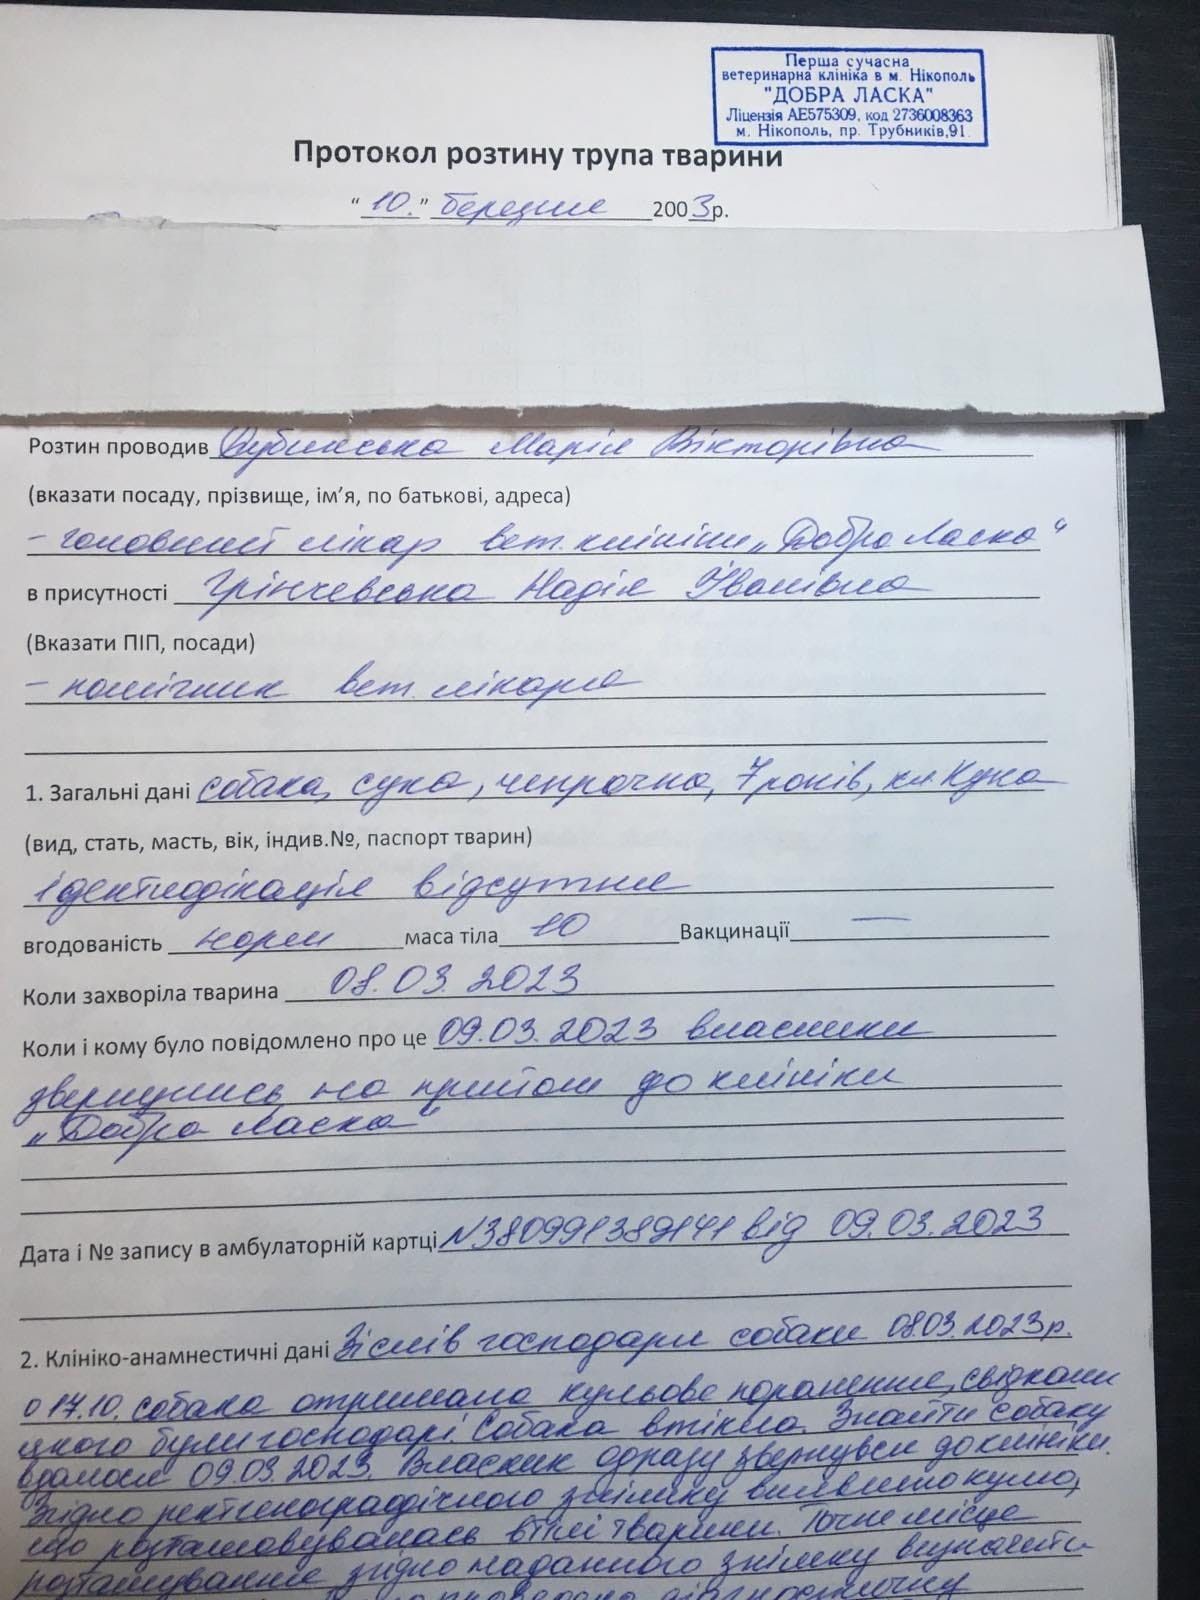 Перша сучасна
ветеринарна клініка в м. Нікополь
"ДОБРА ЛАСКА"
Ліцензія АЕ575309, код 2736008363
м. Нікополь, пр. Трубників,91.
Протокол розтину трупа тварини
"10." березня 2003р.
Розтин проводив Дубинська Марія Вікторівна
(вказати посаду, прізвище, ім'я, по батькові, адреса)
– головний лікар вет. клініки „Добра Ласка“
в присутності Грінчевська Надія Іванівна
(Вказати ПІП, посади)
– помічник вет. лікаря
1. Загальні дані собака, сука, чепрачна, 7 років, кл. Кука
(вид, стать, масть, вік, індив.№, паспорт тварин)
ідентифікація відсутня
вгодованість норм маса тіла 10 Вакцинації —
Коли захворіла тварина 08.03.2023
Коли і кому було повідомлено про це 09.03.2023 власники
звернулись на прийом до клініки
„Добра Ласка“
Дата і № запису в амбулаторній картці N380991389141 від 09.03.2023
2. Клініко-анамнестичні дані Зі слів господаря собаки 08.03.2023р.
о 17.10. собака отримала кульове поранення, свідками
якого були господарі. Собака втікла. Знайти собаку
вдалося 09.03.2023. Власник одразу звернувся до клініки.
Згідно рентгенографічного знімку виявлено кулю,
що розташовувалась в тілі тварини. Точне місце
розташування згідно наданого знімку визначити
проведено діагностичну